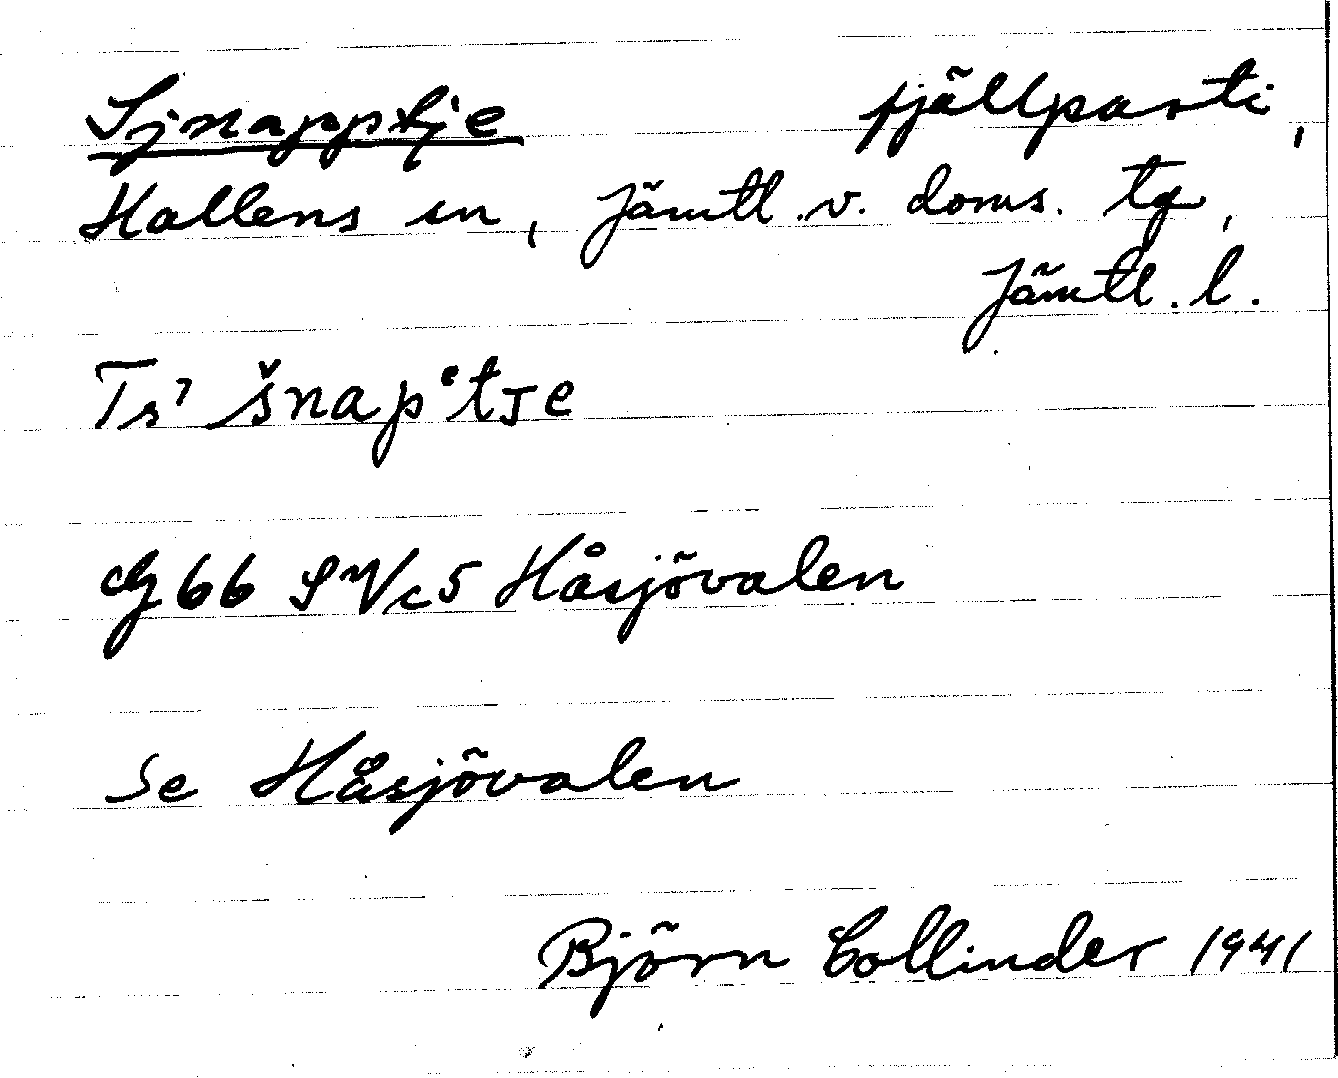 Sjnapptje fjällparti,
Hallens sn, Jämtl. v. doms. tg,
Jämtl. l.
šnapᵉtje
66 SV/c5 Håsjövalen
Se Håsjövalen
Björn Collinder 1941